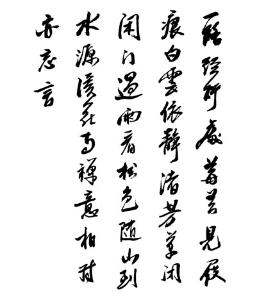 一路經行處莓苔見履
痕白雲依靜渚芳草閉
閑門過雨看松色隨山到
水源溪花與禪意相對
亦忘言